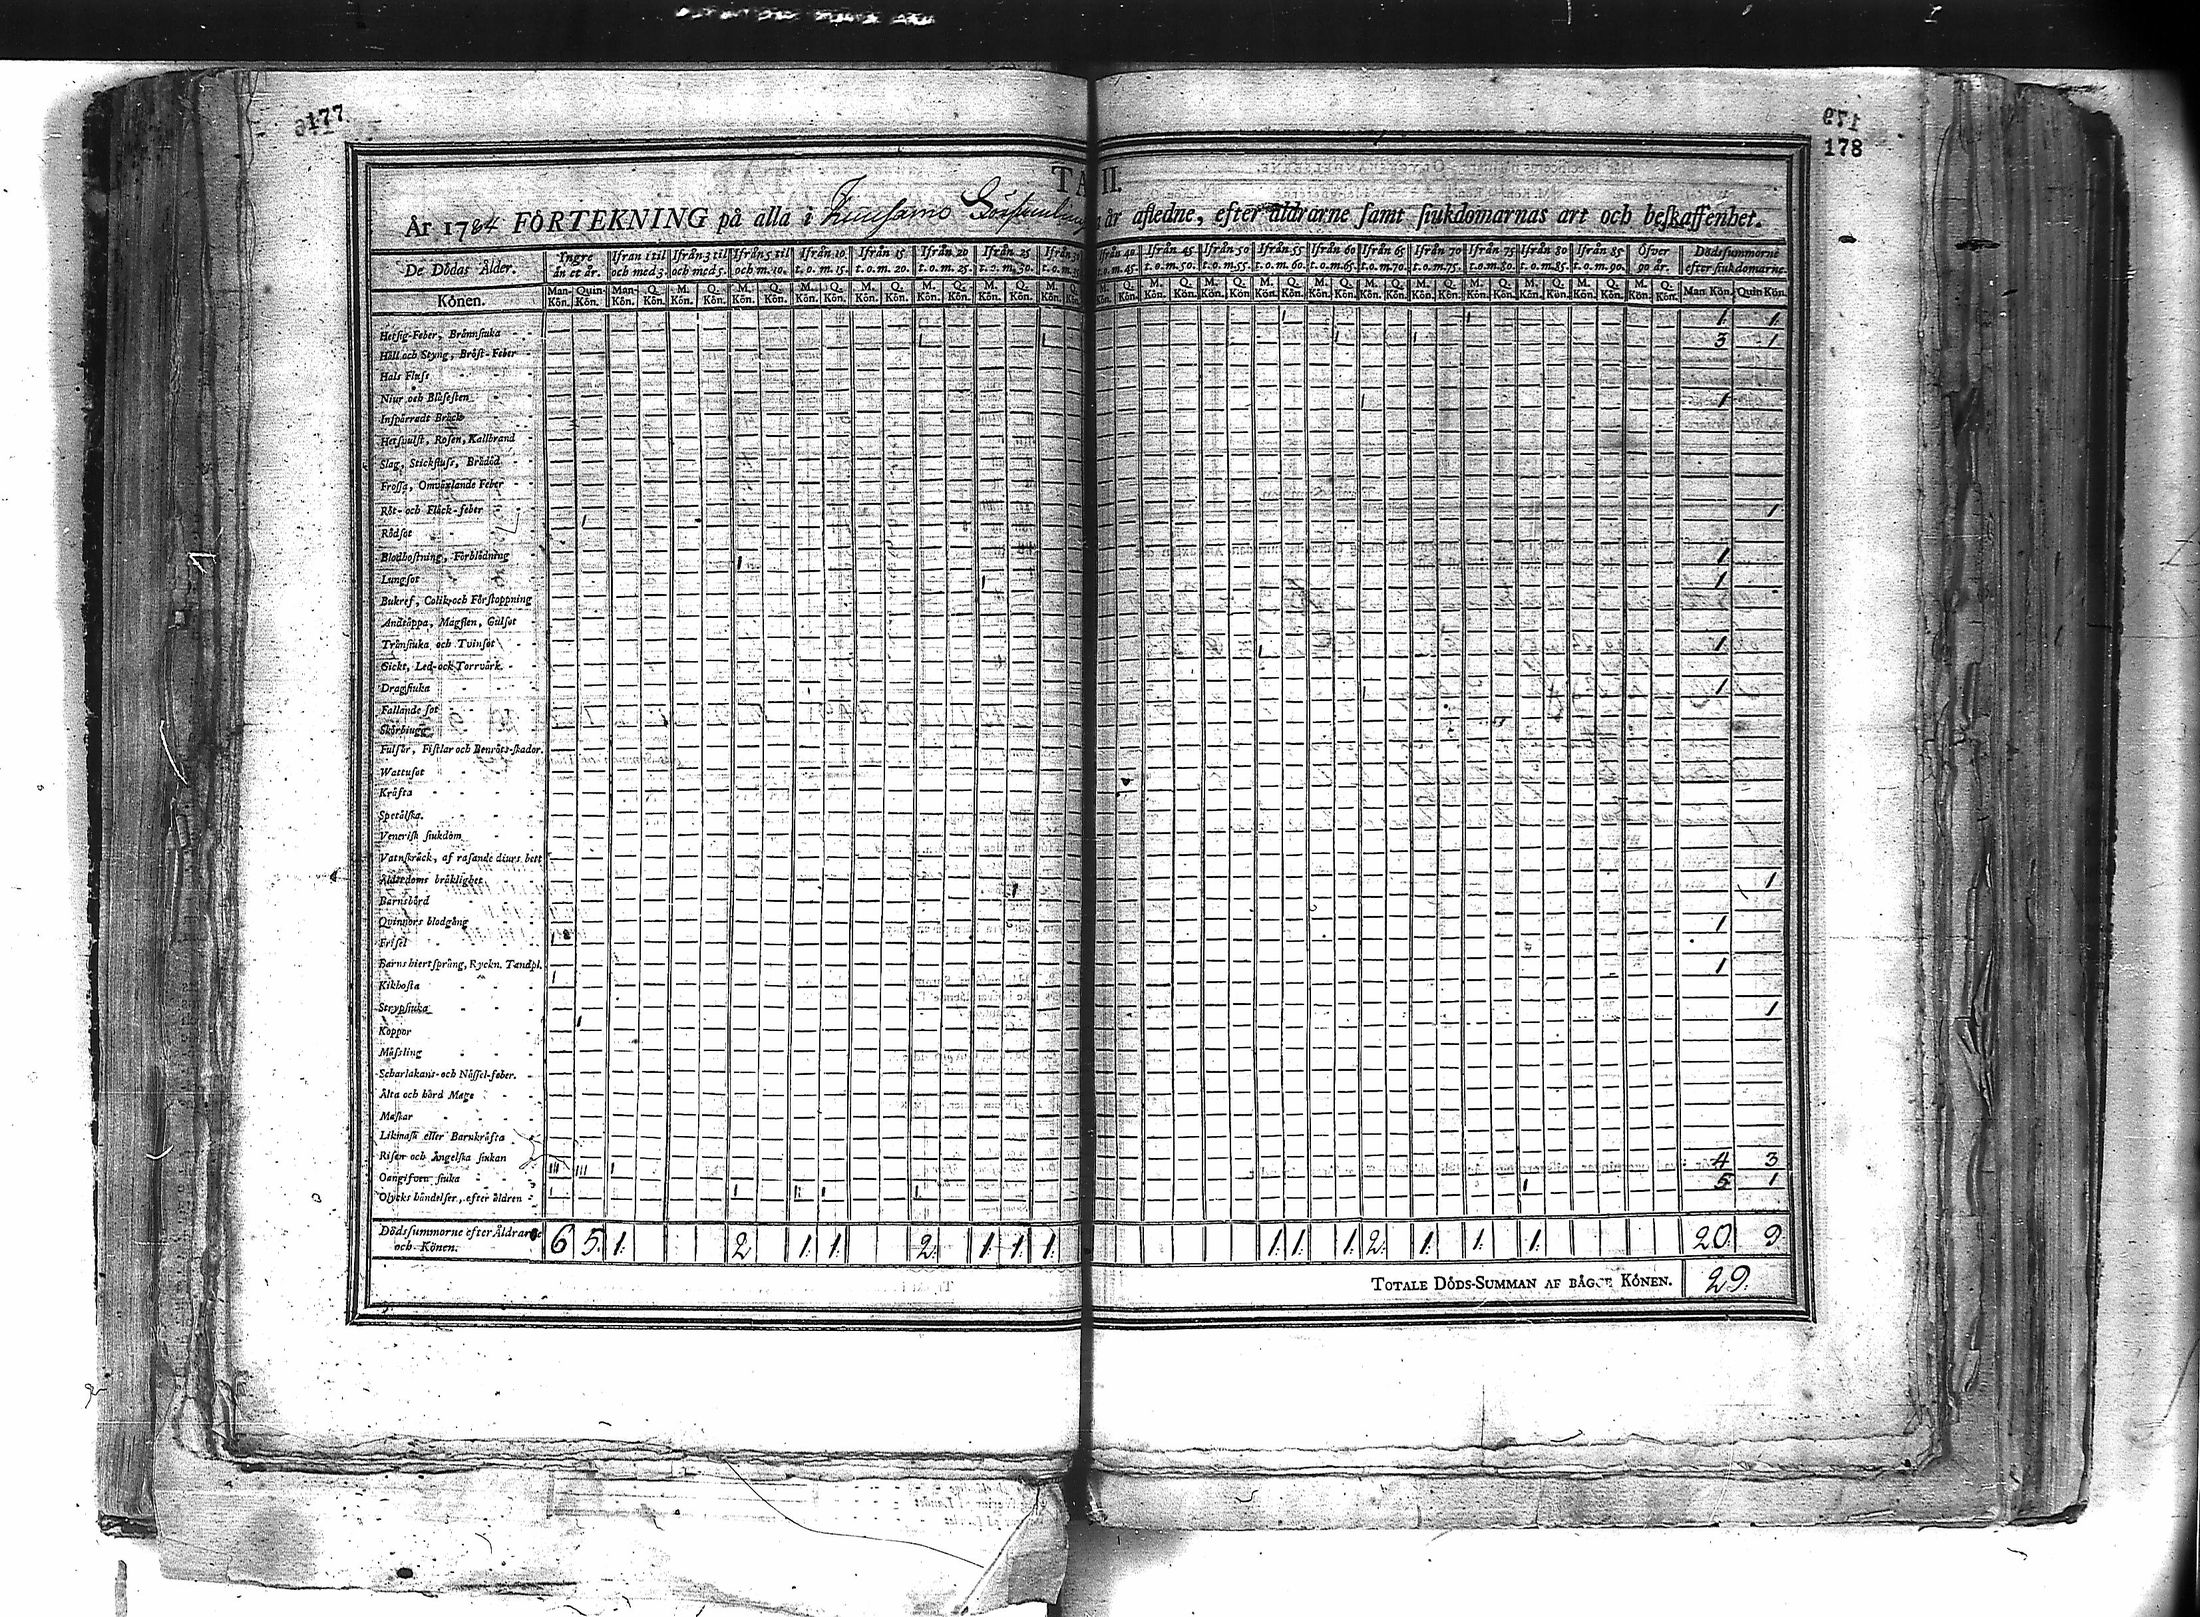 177
179
178
TA II.
År 1784 FÖRTEKNING på alla i Kuusamo år afledne, efter åldrarne samt siukdomarnas art och beskaffenhet.
De Dödas Ålder. Ingre än et år. Ifrån 1 til och med 3. Ifrån 3 til och med 5. Ifrån 5 til och m. 10. Ifrån 10 t.o.m. 15. Ifrån 15 t.o.m. 20. Ifrån 20 t.o.m. 25. Ifrån 25 t.o.m. 30. Ifrån 30 Ifrån 40 t.o.m. 45. Ifrån 45 t.o.m. 50. Ifrån 50 t.o.m. 55. Ifrån 55 t.o.m. 60. Ifrån 60 t.o.m. 65. Ifrån 65 t.o.m. 70. Ifrån 70 t.o.m. 75. Ifrån 75 t.o.m. 80. Ifrån 80 t.o.m. 85. Ifrån 85 t.o.m. 90. Öfver 90 år. Dödssummorne efter siukdomarne.
Könen. Man-Kön. Quin-Kön. Man-Kön. Q. Kön. M. Kön. Q. Kön. M. Kön. Q. Kön. M. Kön. Q. Kön. M. Kön. Q. Kön. M. Kön. Q. Kön. M. Kön. Q. Kön. M. Kön. Q. M. Kön. Q. Kön. M. Kön. Q. Kön. M. Kön. Q. Kön. M. Kön. Q. Kön. M. Kön. Q. Kön. M. Kön. Q. Kön. M. Kön. Q. Kön. M. Kön. Q. Kön. M. Kön. Q. Kön. M. Kön. Q. Kön. M. Kön. Q. Kön. Man Kön. Quin Kön.
Hetsig-Feber, Brännsiuka 1 1 1 1
Håll och Styng, Bröst-Feber 1 1 1 1 3 1
Hals Fluss
Niur och Blåsesten 1 1
Inspärradt Bråck
Hetsvulst, Rosen, Kallbrand
Slag, Stickfluss, Brådöd
Frossa, Omväxlande Feber
Röt- och Fläck-feber 1 1
Rödsot
Blodhostning, Förblödning 1 1
Lungsot 1 1
Bukref, Colik och Förstoppning
Andtäppa, Magflen, Gulsot
Trånsiuka och Tvinsot 1 1
Gickt, Led- och Torrvärk
Dragsiuka 1 1
Fallande sot
Skörbiugg
Fulsår, Fistlar och Benröts-skador.
Wattusot
Kräfta
Spetälska.
Venerisk siukdom
Vatnskräck, af rasande diurs bett
Ålderdoms bräklighet 1 1
Barnsbörd
Quinnors blodgång 1
Frisel 1
Barns hiertsprång, Ryckn. Tandpl. 1
Kikhosta 1
Strypsiuka 1
Koppor 1
Mässling
Scharlakans- och Nässel-feber.
Älta och hård Mage
Maskar
Likmask eller Barnkräfta
Risen och Ängelska siukan 4 3
Oangifven siuka 5 1
Olycks händelser, efter äldren
Dödssummorne efter Åldrarne och Könen. 6 5 1 2 1 1 2 1 1 1 1 1 1 2 1 1 1 20 9
TOTALE DÖDS-SUMMAN AF BÄGGE KÖNEN. 29.